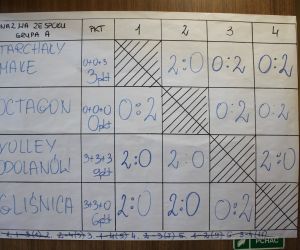 NAZWA ZESPOŁU GRUPA A PKT 1 2 3 4
TARCHAŁY MAŁE 0+0+3 3pkt 2:0 0:2 0:2
OCTAGON 0+0+0 0pkt 0:2 0:2 0:2
VOLLEY ODOLANÓW 3+3+3 9pkt 2:0 2:0 2:0
GLIŚNICA 3+3+0 6pkt 2:0 2:0 0:2